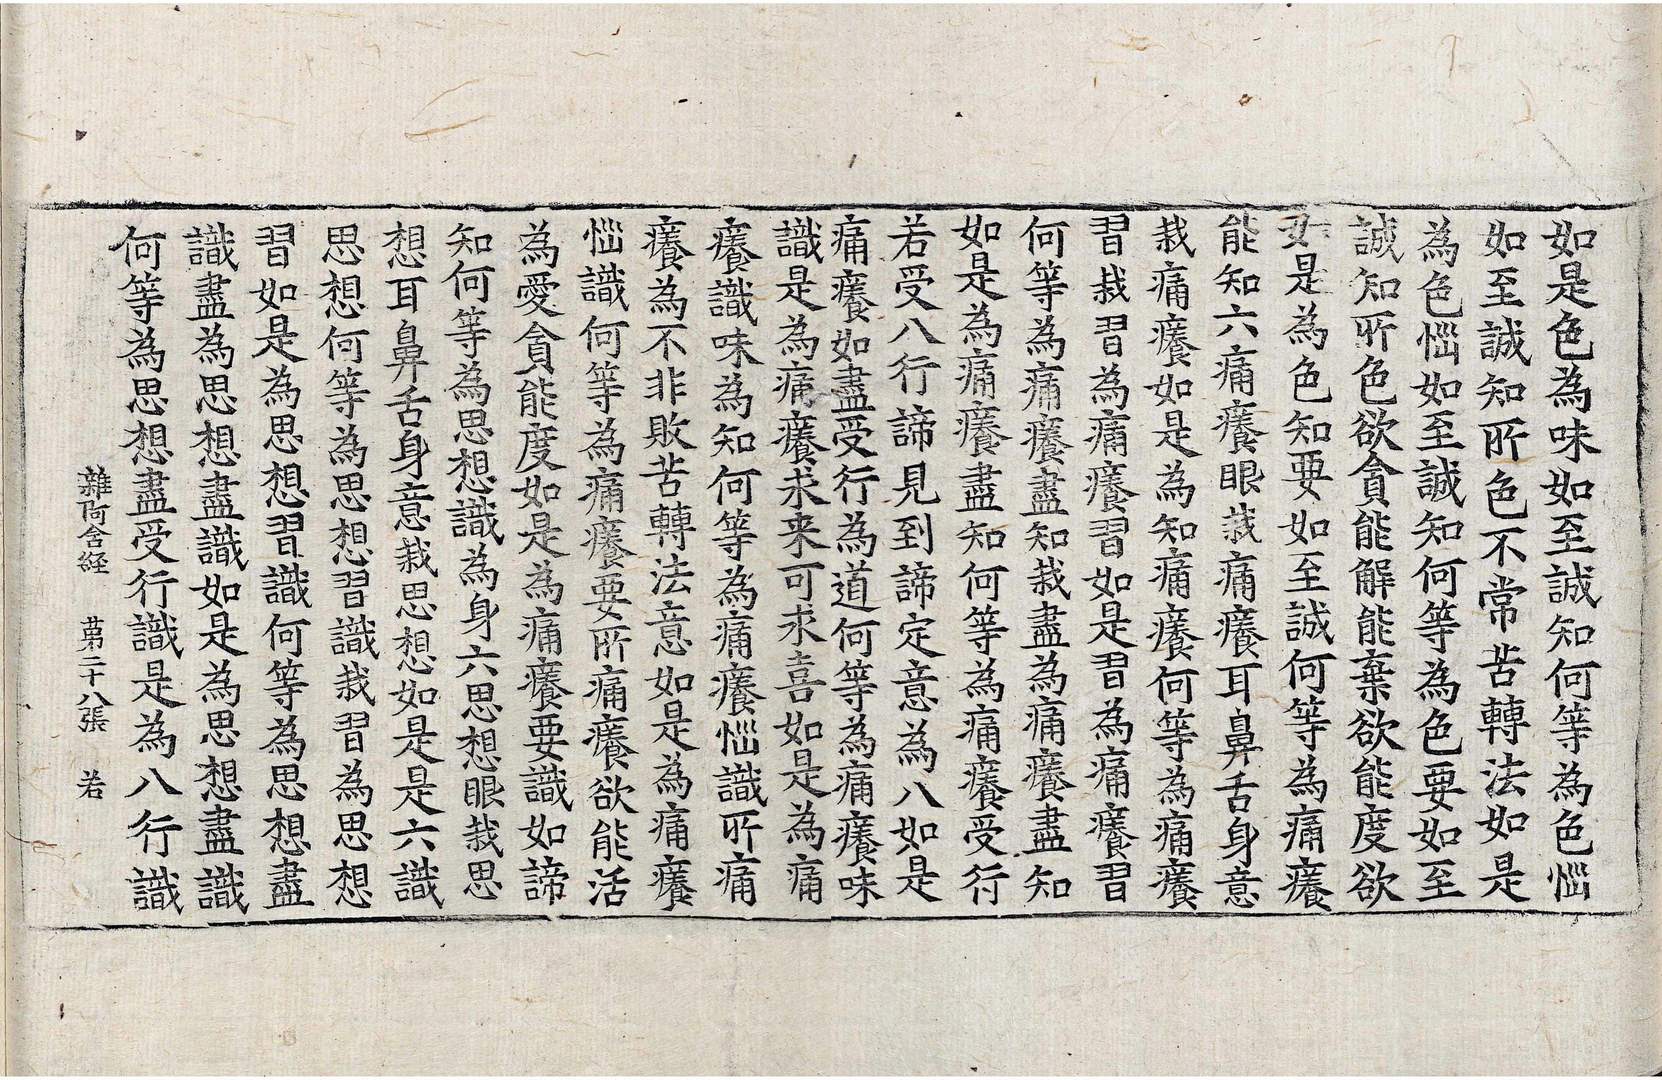 如是色為味如至誠知何等為色惱
如至誠知所色不常苦轉法如是
為色惱如至誠知何等為色要如至
誠知所色欲貪能解能棄欲能度欲
如是為色知要如至誠何等為痛癢
能知六痛癢眼栽痛癢耳鼻舌身意
栽痛癢如是為知痛癢何等為痛癢
習栽習為痛癢習如是習為痛癢習
何等為痛癢盡知栽盡為痛癢盡知
如是為痛癢盡知何等為痛癢受行
若受八行諦見到諦定意為八如是
痛癢如盡受行為道何等為痛癢味
識是為痛癢求来可求喜如是為痛
癢識味為知何等為痛癢惱識所痛
癢為不非敗苦轉法意如是為痛癢
惱識何等為痛癢要所痛癢欲能活
為愛貪能度如是為痛癢要識如諦
知何等為思想識為身六思想眼栽思
想耳鼻舌身意栽思想如是是六識
思想何等為思想習識栽習為思想
習如是為思想習識何等為思想盡
識盡為思想盡識如是為思想盡識
何等為思想盡受行識是為八行識
雜阿含経 苐二十八張 若